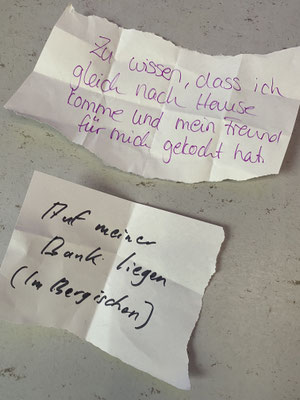 Zu wissen, dass ich
gleich nach Hause
komme und mein Freund
für mich gekocht hat.
Auf meiner
Bank liegen
(Im Bergischen)